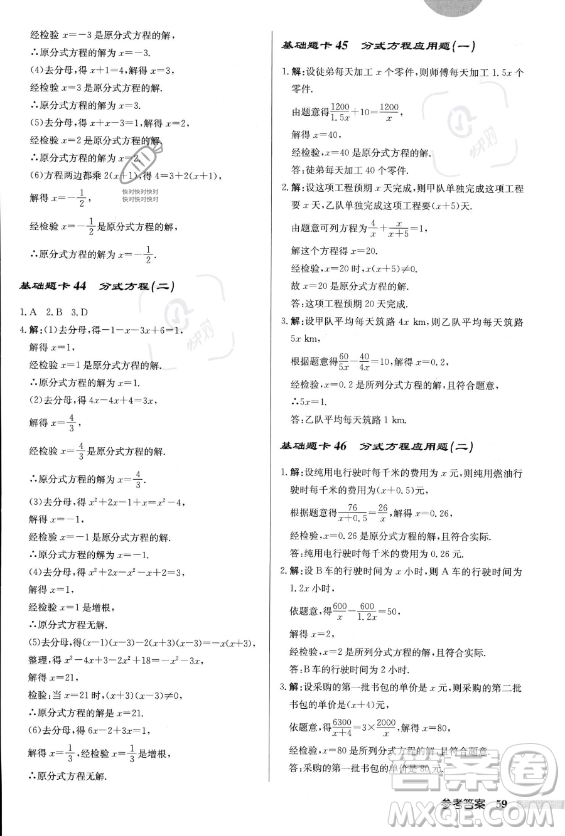 经检验 x=3 是原分式方程的解.
∴原分式方程的解为 x=3.
(4)去分母,得 x+1=4,解得 x=3.
经检验 x=3 是原分式方程的解.
∴原分式方程的解为 x=3.
(5)去分母,得
经检验 x=2 是原分式方程的解.
∴原分式方程的解为 x=2.
(6)方程两边都乘 2(x-1),得 4=3+2(x-1).
解得 x=-1/2,
快对快对快对
快对快对快对
经检验 x=-1/2 是原分式方程的解,
∴原分式方程的解为 x=-1/2.
基础题卡 44 分式方程(二)
1.A 2.B 3.D
4.解:(1)去分母,得-1-3x+6=1,
解得 x=1,
经检验 x=1 是原分式方程的解.
∴原分式方程的解为 x=1.
(2)去分母,得 4x-4=x,
解得 x=4/3,
经检验 x=4/3 是原分式方程的解.
∴原分式方程的解为 x=4/3.
(3)去分母,得 x²+2x-1=x²-3,
解得 x=-1,
经检验 x=-1 是原分式方程的解.
∴原分式方程的解为 x=-1.
(4)去分母,得 x²+2x+1-4=x²-1,
解得 x=1,
经检验 x=1 是增根,
∴分式方程无解.
(5)去分母,得(x-1)(x-3)+2x-18=x²-3x,
整理,得 x²-4x+3+2x-18=x²-3x,
解得 x=21,
检验:当 x=21 时,(x-3)(x+3)≠0,
∴原分式方程的解为 x=21.
(6)去分母,得 6x-2+3x=1,
解得 x=1/3,经检验 x=1/3 是增根,
∴原分式方程无解.
基础题卡 45 分式方程应用题(一)
1.解:设徒弟每天加工 x 个零件,则师傅每天加工 1.5x 个
零件.
由题意得1200/1.5x+10=1200/x,
解得 x=40.
经检验,x=40 是原分式方程的解.
答:徒弟每天加工 40 个零件.
2.解:设这项工程预期 x 天完成,则甲队单独完成这项工程
需 x 天,乙队单独完成这项工程需(x+5)天.
由题意可列方程为4/x+x/(x+5)=1.
解这个方程得 x=20.
经检验,x=20 是所列方程的解.
故 x=20.
答:这项工程预期 20 天完成.
3.解:设甲队平均每天筑路 4x km,则乙队平均每天筑路
5x km.
根据题意得60/5x-40/4x=10.
经检验,x=0.2 是所列分式方程的解且符合题意,
∴5x=1.
答:乙队平均每天筑路 1 km.
基础题卡 46 分式方程应用题(二)
1.解:设纯用电行驶时每千米的费用为 x 元,则纯用燃油行
驶时每千米的费用为(x+0.5)元,
根据题意得76/(x+0.5)=26/x,解得 x=0.26,
经检验,x=0.26 是原方程的解,且符合实际.
答:纯用电行驶时每千米的费用为 0.26 元.
2.解:设 B 车的行驶时间为 x 小时,则 A 车的行驶时间为
1.2x 小时,
依题意,得600/x-600/1.2x=50,
解得 x=2,
经检验,x=2 是原分式方程的解且符合题意.
答:B 车的行驶时间为 2 小时.
3.解:设采购的第一批书包的单价是 x 元,则采购的第二批
书包的单价是(x+4)元,
依题意,得6300/(x+4)=3×2000/x,
解得 x=80,
经检验,x=80 是所列方程的解,且符合实际.
答:采购的第一批书包的单价是 80 元.
参考答案 59